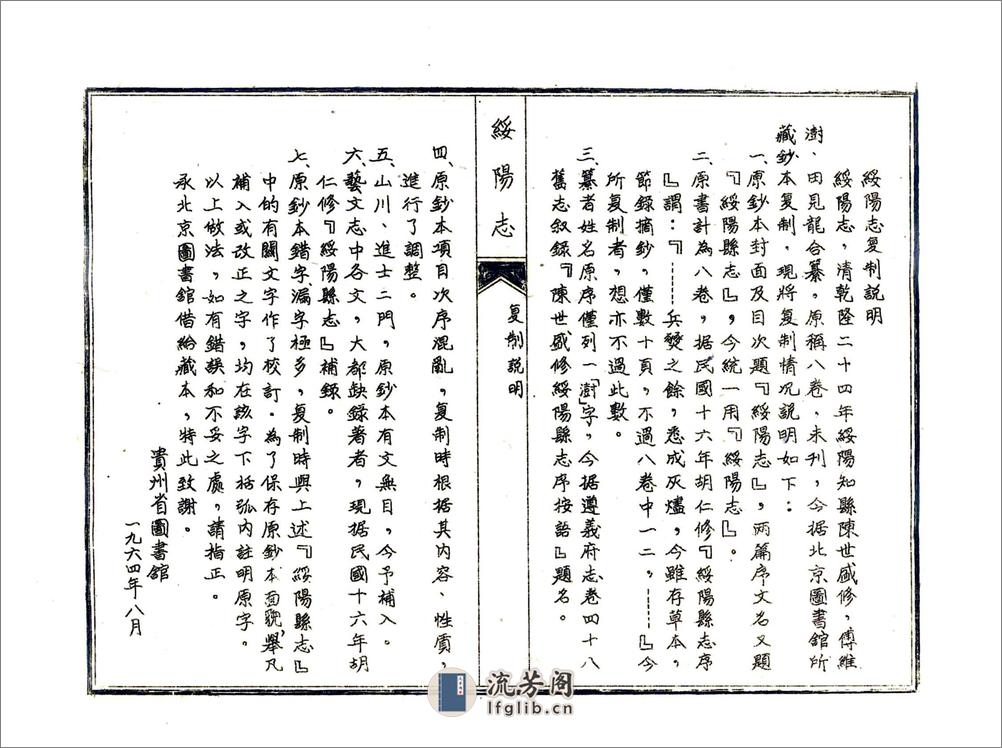 綏陽志复制説明
綏陽志，清乾隆二十四年綏陽知縣陳世盛修，傅維
澍、田見龍合纂，原稱八卷，未刊，今据北京圖書館所
藏鈔本复制，現將复制情况説明如下：
一、原鈔本封面及目次題『綏陽志』，兩篇序文名又題
『綏陽縣志』，今統一用『綏陽志』。
二、原書計為八卷，据民國十六年胡仁修『綏陽縣志序
』謂：『……兵燹之餘，悉成灰燼，今雖存草本，
節錄摘鈔，僅數十頁，不過八卷中一二，……』今
所复制者，想亦不過此數。
三、纂者姓名原序僅列一「澍」字，今据遵義府志卷四十八
舊志叙錄『陳世盛修綏陽縣志序按語』題名。
綏陽志
复制説明
四、原鈔本項目次序混亂，复制時根据其内容、性质，
進行了調整。
五、山川、進士二門，原鈔本有文無目，今予補入。
六、藝文志中各文，大都缺錄著者，現据民國十六年胡
仁修『綏陽縣志』補錄。
七、原鈔本錯字、漏字極多，复制時與上述『綏陽縣志』
中的有關文字作了校訂．為了保存原鈔本面貌，舉凡
補入或改正之字，均在該字下括弧内註明原字。
以上做法，如有錯誤和不妥之處，請指正。
承北京圖書館借給藏本，特此致謝。
貴州省圖書館
一九六四年八月
流芳阁
lfglib.cn